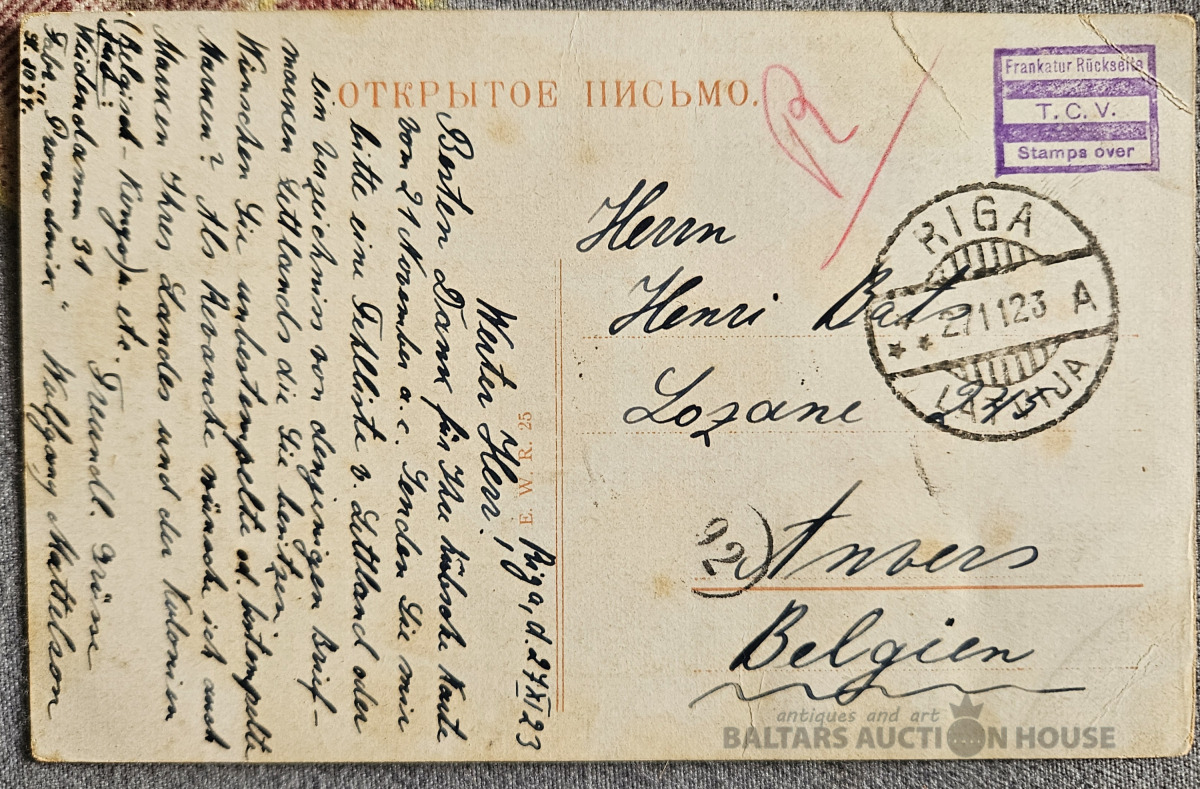 ОТКРЫТОЕ ПИСЬМО.
Frankatur Rückseite
T. C. V.
Stamps over
RIGA
27 11 23 A
LATVIJA
Herrn
Henri Bats
Lozane
Anvers
Belgien
92
E. W. R. 25
Riga, d. 27 XI 23
Werter Herr!
Besten Dank für Ihre hübsche Karte
vom 21 November a.c. Senden Sie mir
bitte eine Fehlliste v. Lettland oder
ein Verzeichniss von denjenigen Brief-
marken Lettlands die Sie benötigen.
Wünschen Sie unbestempelte od. gestempelte
Marken? Als Revanche wünsche ich auch
Marken Ihres Landes und der Kolonien
(Belgisch-Kongo) u. etc. Freundl. Grüsse
Wolfgang Mattelson
Weidendamm 31
Fabr. "Prowodnik"
antiques and art
BALTARS AUCTION HOUSE